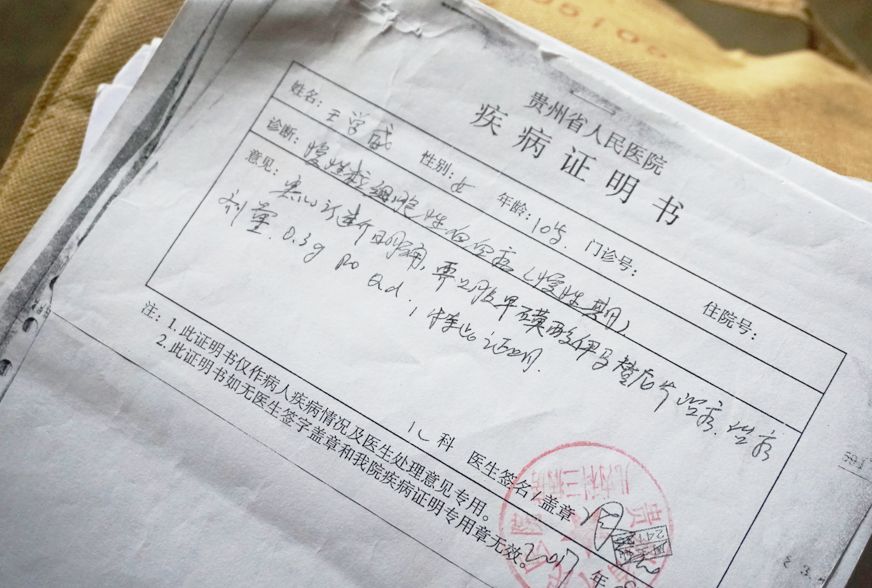 贵州省人民医院
疾病证明书
姓名: 王学成 性别: 女 年龄: 10岁. 门诊号: 住院号:
诊断: 慢性粒细胞性白血病(慢性期)
意见: 患儿诊断明确, 需口服甲磺酸伊马替尼片治病. 治病
剂量. 0.3g po qd. 特此证明.
儿科 医生签名/盖章
2017年
注: 1. 此证明书仅作病人疾病情况及医生处理意见专用。
2. 此证明书如无医生签字盖章和我院疾病证明专用章无效。